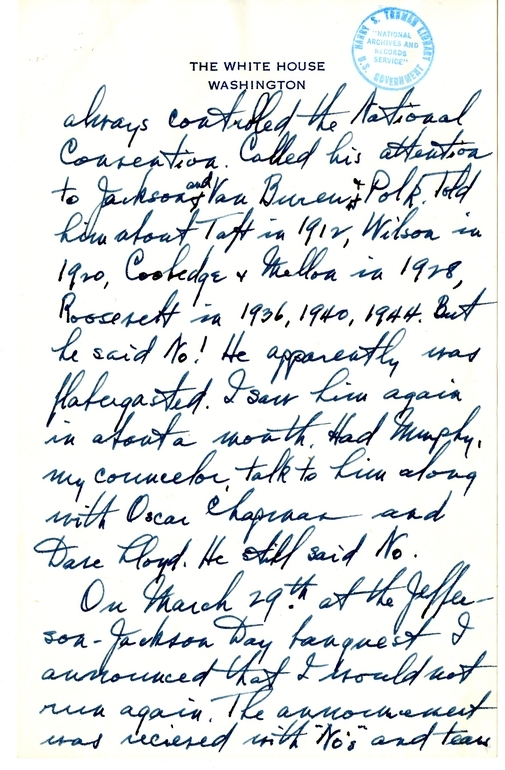 HARRY S. TRUMAN LIBRARY
"NATIONAL
ARCHIVES AND
RECORDS
SERVICE"
U.S. GOVERNMENT
THE WHITE HOUSE
WASHINGTON
always controlled the National
Convention. Called his attention
to Jackson and Van Buren & Polk. Told
him about Taft in 1912, Wilson in
1920, Cooledge & Mellon in 1928,
Roosevelt in 1936, 1940, 1944. But
he said No! He apparently was
flabergasted. I saw him again
in about a month. Had Murphy,
my councelor, talk to him along
with Oscar Chapman and
Dave Lloyd. He still said No.
On March 29th. at the Jeffer-
son-Jackson Day banquest I
announced that I would not
run again. The announcement
was recieved with "No's" and tears